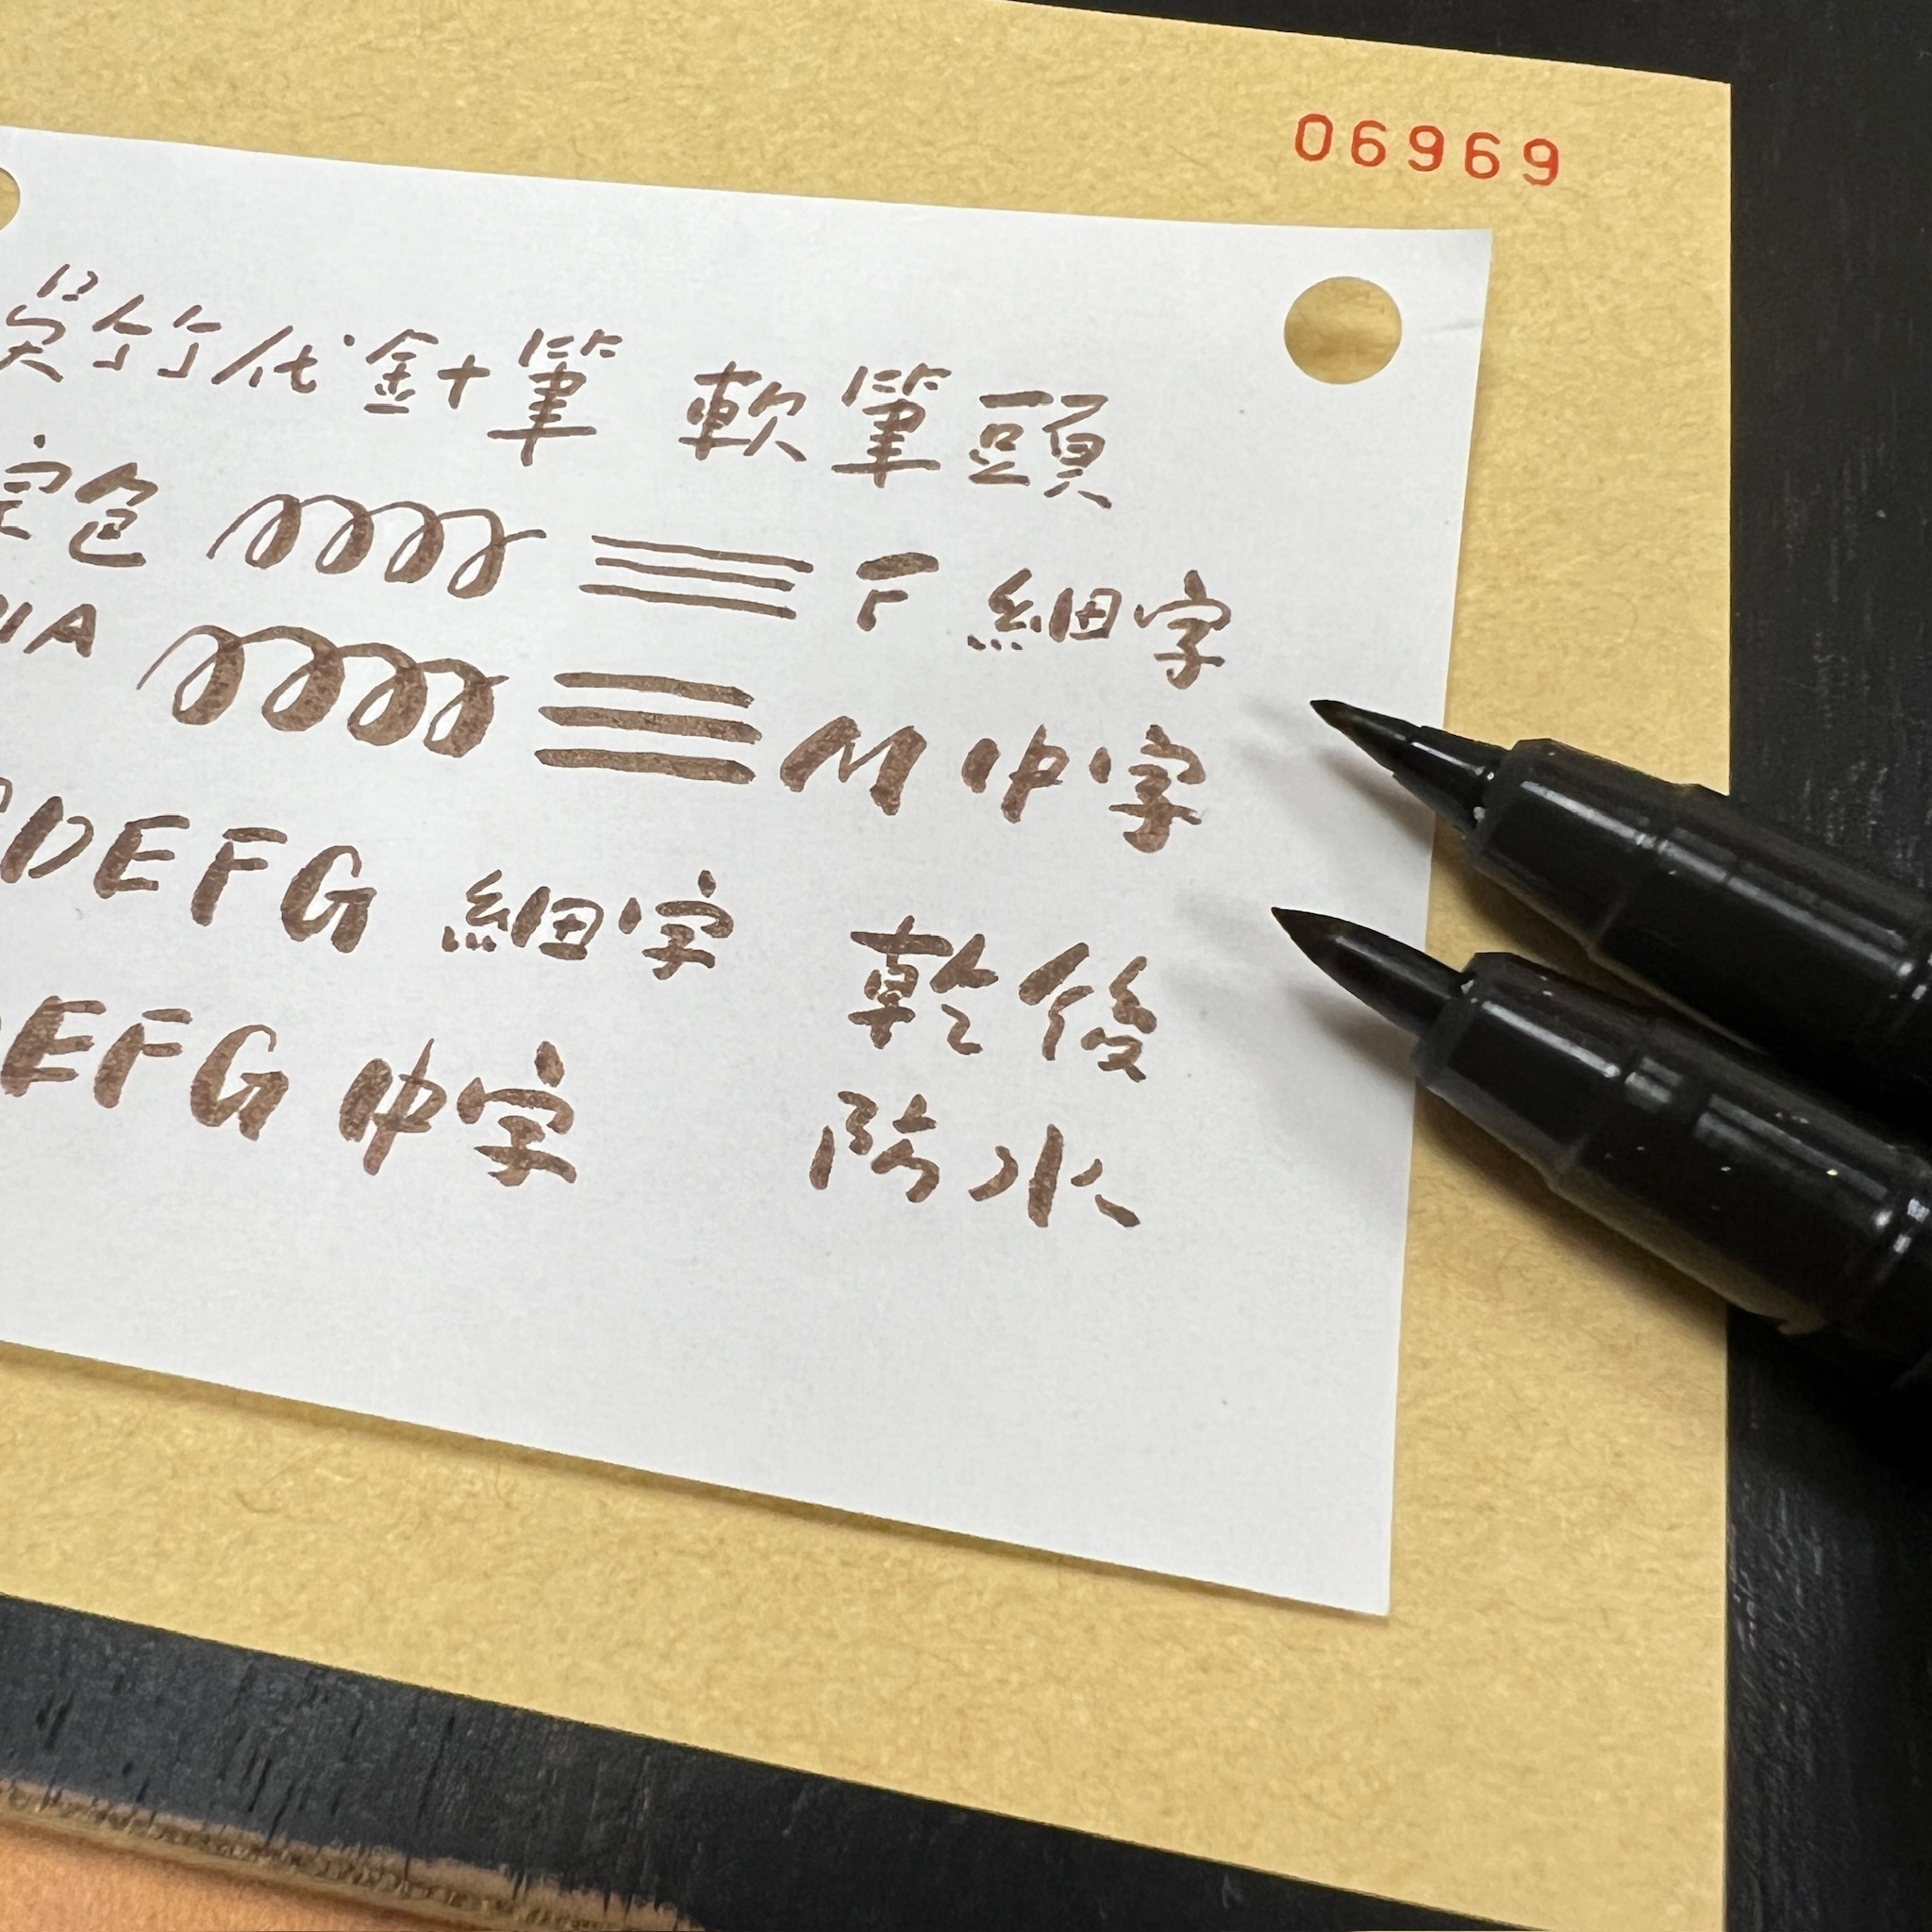 06969
吳竹代針筆 軟筆頭
色 F 細字
IA M 中字
DEFG 細字 乾後
EFG 中字 防水